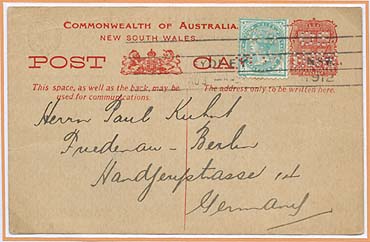 COMMONWEALTH OF AUSTRALIA.
NEW SOUTH WALES.
POST CARD
This space, as well as the back, may be used for communications.
The address only to be written here.
1912
Herrn Paul Kuhnt
Friedenau - Berlin
Handjerystrasse 14
Germany